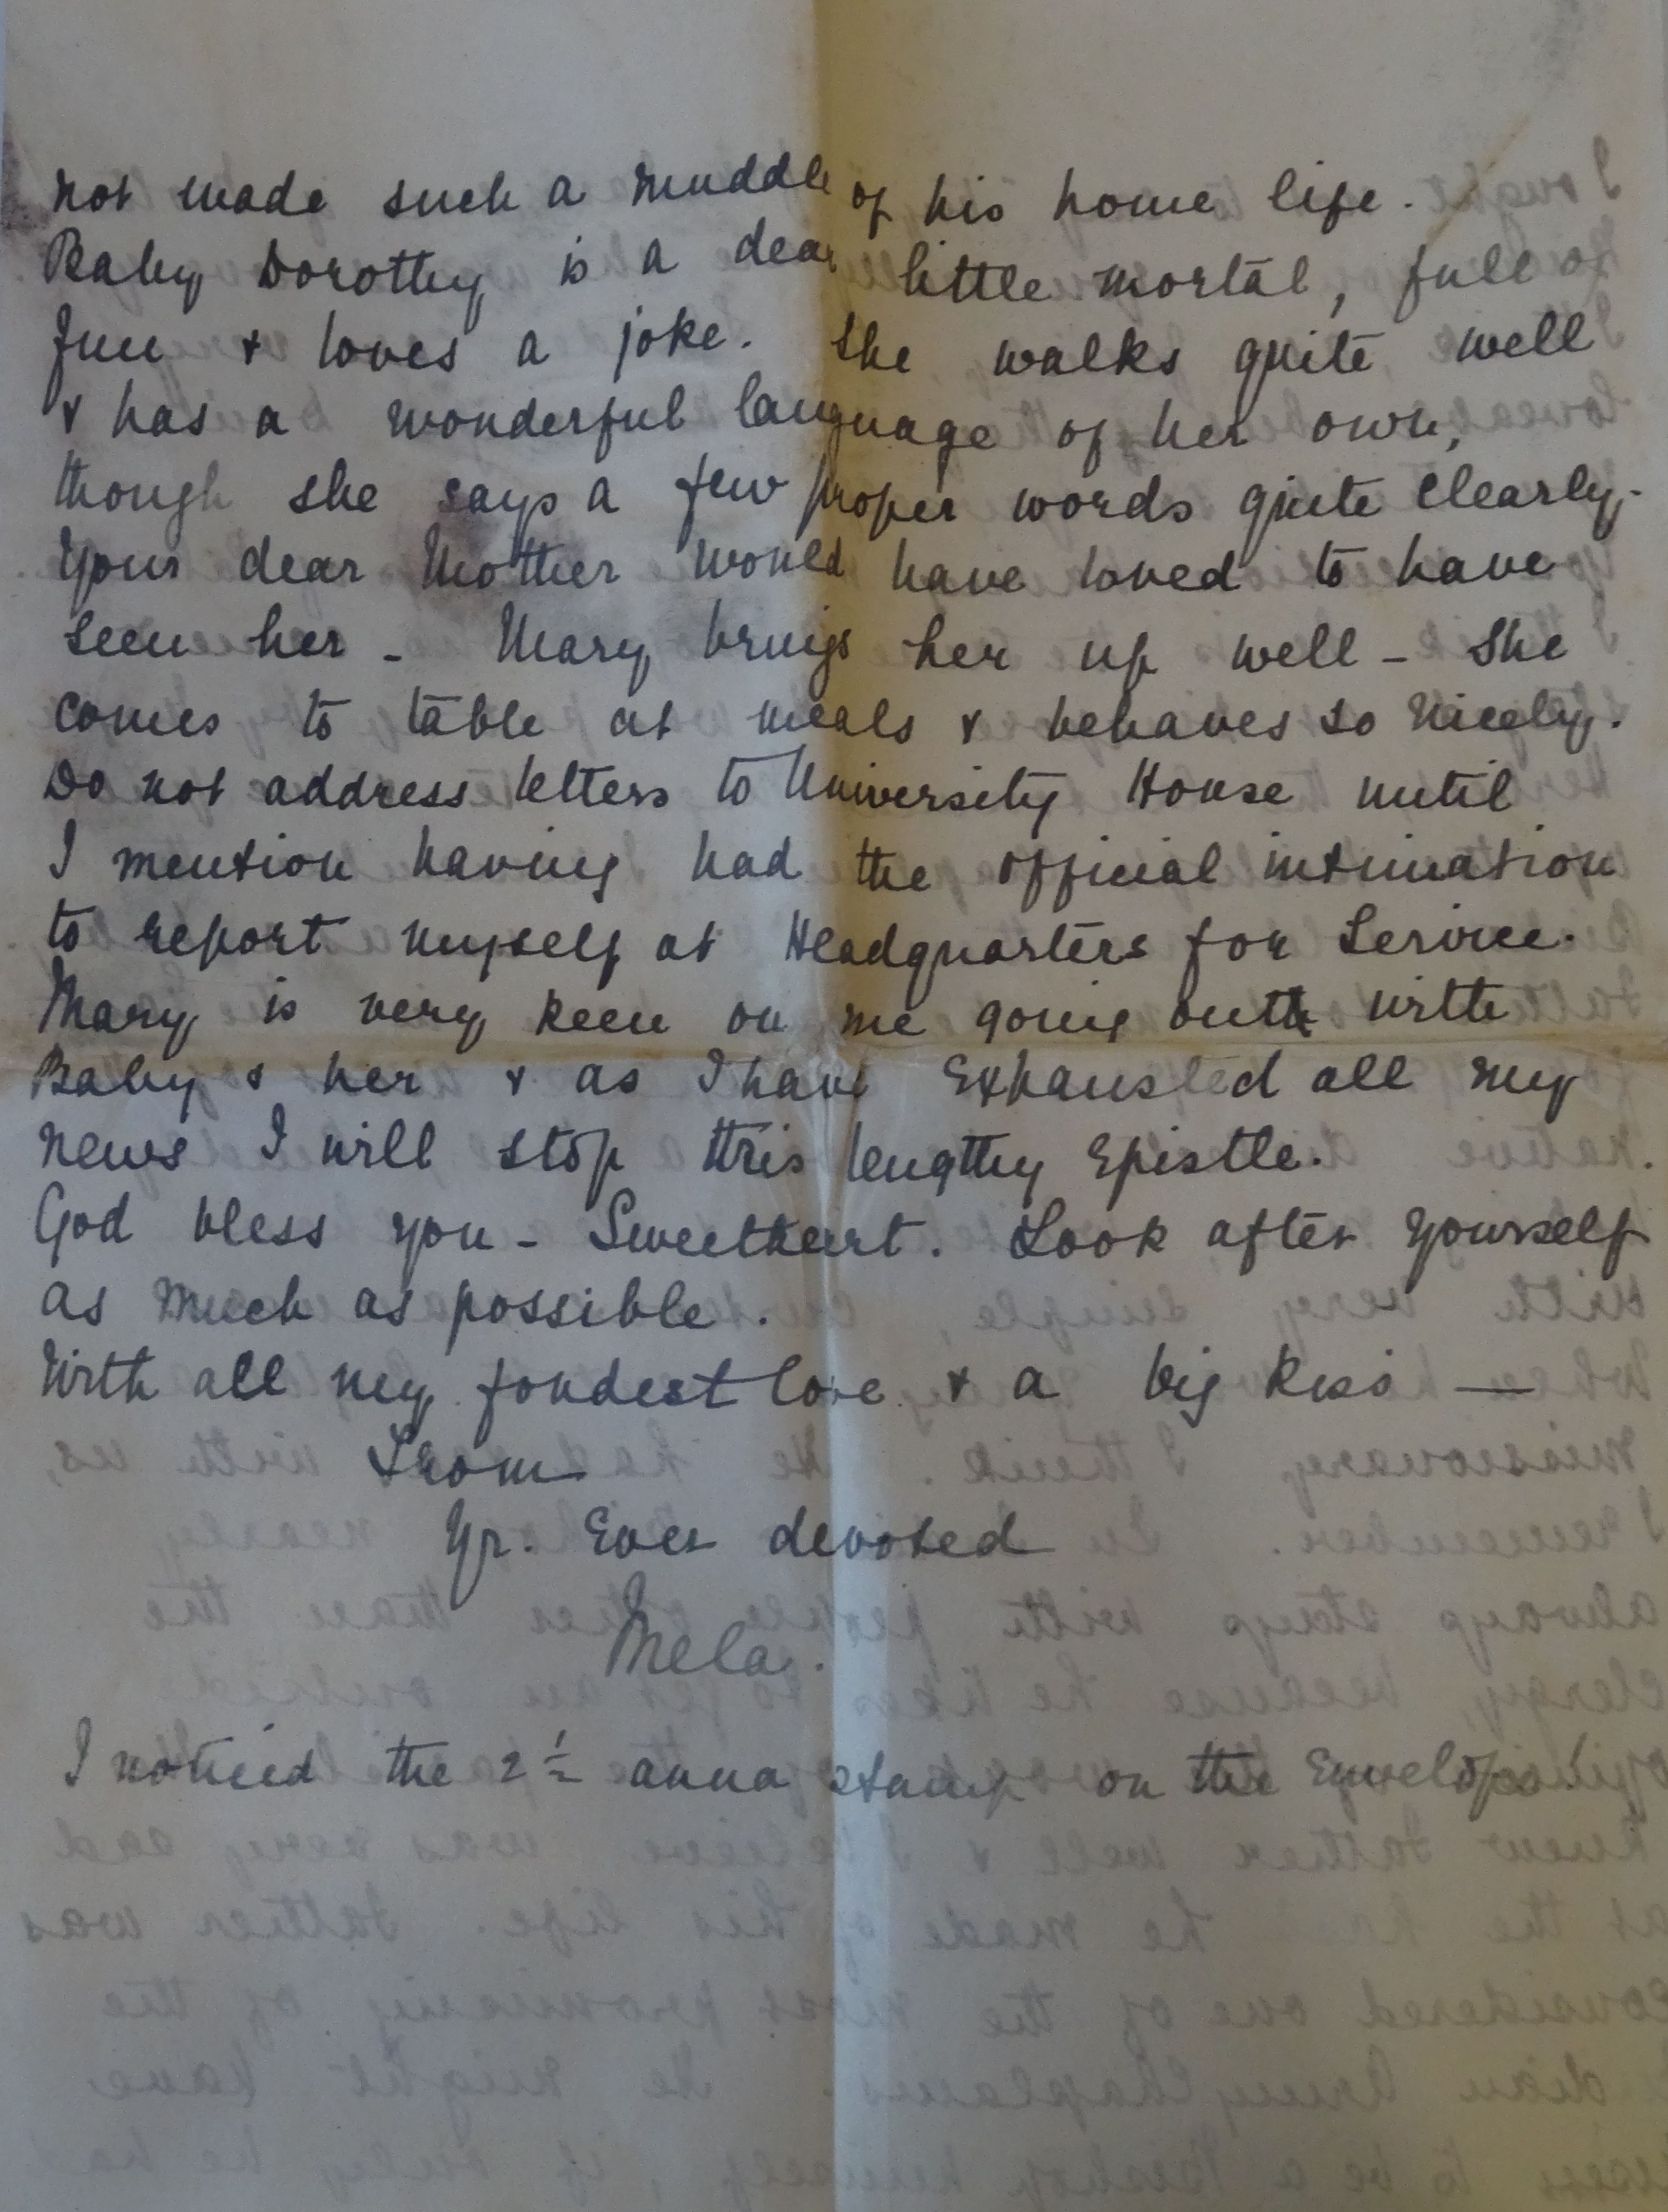 not made such a muddle of his home life.
Baby Dorothy is a dear little mortal, full of
fun & loves a joke. She walks quite well
& has a wonderful language of her own,
though she says a few proper words quite clearly.
Your dear Mother would have loved to have
seen her - Mary brings her up well - She
comes to table at meals & behaves so nicely.
Do not address letters to University House until
I mention having had the official intimation
to report myself at Headquarters for Service.
Mary is very keen on me going out with
Baby & her & as I have Exhausted all my
news I will stop this lengthy Epistle.
God bless you - Sweetheart. Look after yourself
as much as possible.
With all my fondest love & a big kiss —
From
Yr. Ever devoted
Mela.
I noticed the 2½ anna stamp on the Envelope!